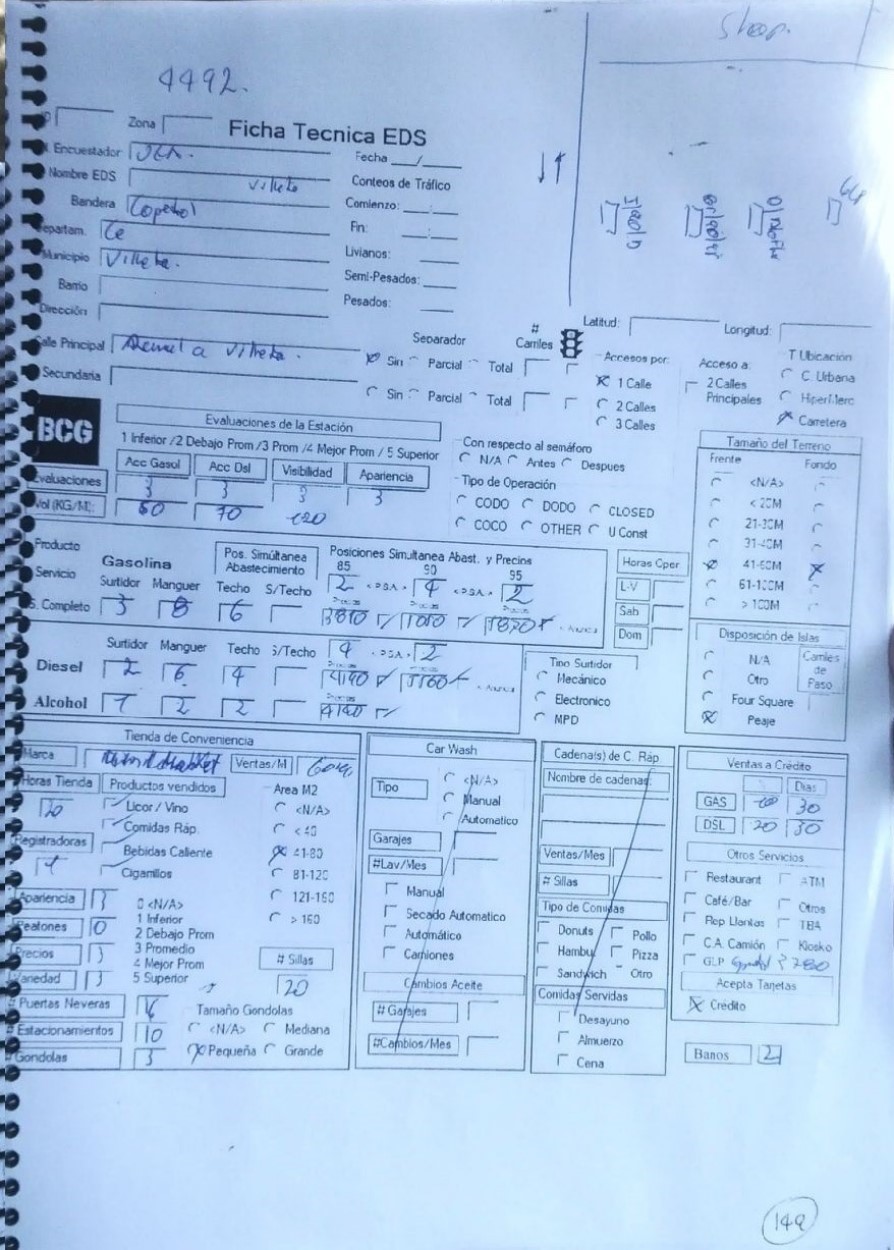 Shop.
4492.
Zona
Ficha Tecnica EDS
Encuestador
Fecha __/__
Nombre EDS Villeta
Conteos de Tráfico
Bandera
Comienzo: __:__
Departam.
Fin: __:__
Municipio Villeta.
Livianos:
Barrio
Semi-Pesados:
Dirección
Pesados:
Latitud:
Longitud:
Calle Principal a Villeta.
Separador
# Carriles
Sin Parcial Total
Accesos por:
Acceso a:
T Ubicación
Secundaria
Sin Parcial Total
1 Calle
2 Calles
3 Calles
2 Calles Principales
C. Urbana
HiperMerc
Carretera
BCG
Evaluaciones de la Estación
1 Inferior /2 Debajo Prom /3 Prom /4 Mejor Prom / 5 Superior
Acc Gasol Acc Dsl Visibilidad Apariencia
Evaluaciones 3 3 3 3
Vol (KG/M): 60 70 120
Con respecto al semáforo
N/A Antes Despues
Tipo de Operación
CODO DODO CLOSED
COCO OTHER U Const
Tamaño del Terreno
Frente Fondo
<N/A>
< 20M
21-30M
31-40M
41-60M
61-100M
> 100M
Producto
Servicio
Gasolina
Pos. Simúltanea Abastecimiento
Posiciones Simultanea Abast. y Precios
85 90 95
2 4 2
Surtidor Manguer Techo S/Techo
S. Completo 3 8 6
Horas Oper
L-V
Sab
Dom
Surtidor Manguer Techo S/Techo 4 2
Diesel 2 6 4
Alcohol 1 2 2
Tipo Surtidor
Mecánico
Electronico
MPD
Disposición de Islas
N/A
Otro
Four Square
Peaje
Carriles de Paso
Tienda de Conveniencia
Marca
Ventas/M
Horas Tienda
Productos vendidos
Area M2
20
Licor / Vino
Comidas Ráp.
Bebidas Caliente
Cigarrillos
<N/A>
< 40
41-80
81-120
121-160
> 160
Registradoras 1
Apariencia 3
Peatones 0
Precios 3
Variedad 3
0 <N/A>
1 Inferior
2 Debajo Prom
3 Promedio
4 Mejor Prom
5 Superior
# Sillas
20
# Puertas Neveras
# Estacionamientos 10
# Gondolas 3
Tamaño Gondolas
<N/A> Mediana
Pequeña Grande
Car Wash
Tipo
<N/A>
Manual
Automatico
Garajes
#Lav/Mes
Manual
Secado Automatico
Automático
Camiones
Cambios Aceite
# Garajes
#Cambios/Mes
Cadena(s) de C. Ráp
Nombre de cadenas:
Ventas/Mes
# Sillas
Tipo de Comidas
Donuts Pollo
Hambu Pizza
Sandwich Otro
Comidas Servidas
Desayuno
Almuerzo
Cena
Ventas a Crédito
Dias
GAS 30
DSL 20 30
Otros Servicios
Restaurant ATM
Café/Bar Otros
Rep Llantas TBA
C.A. Camión Kiosko
GLP
Acepta Tarjetas
Crédito
Banos 2
149